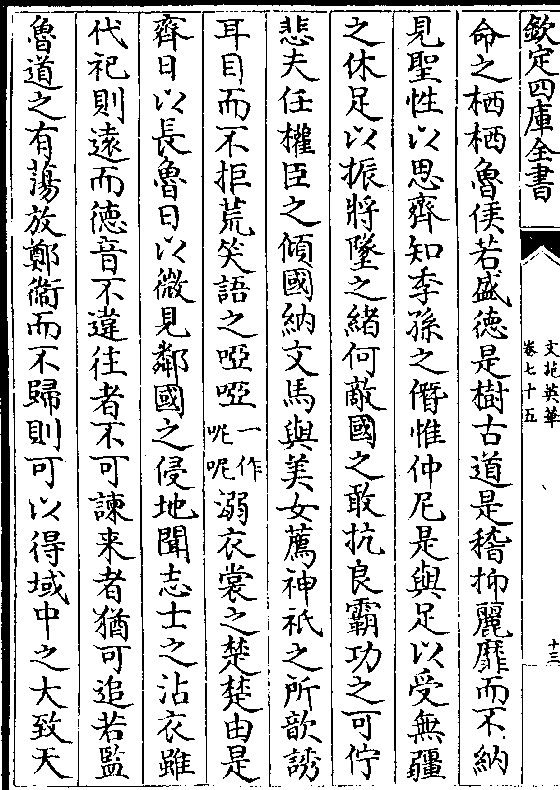 欽定四庫全書
文苑英華
卷七十五
十三
命之栖栖魯侯若盛德是樹古道是稽抑麗靡而不納
見聖性以思齊知季孫之僭惟仲尼是與足以受無疆
之休足以振將墜之緒何敵國之敢抗良霸功之可佇
悲夫任權臣之傾國納文馬與美女薦神祇之所歆誘
耳目而不拒荒笑語之啞啞一作呢呢溺衣裳之楚楚由是
齊日以長魯日以微見鄰國之侵地聞志士之沾衣雖
代祀則遠而德音不違往者不可諫来者猶可追若監
魯道之有蕩放鄭衛而不歸則可以得域中之大致天